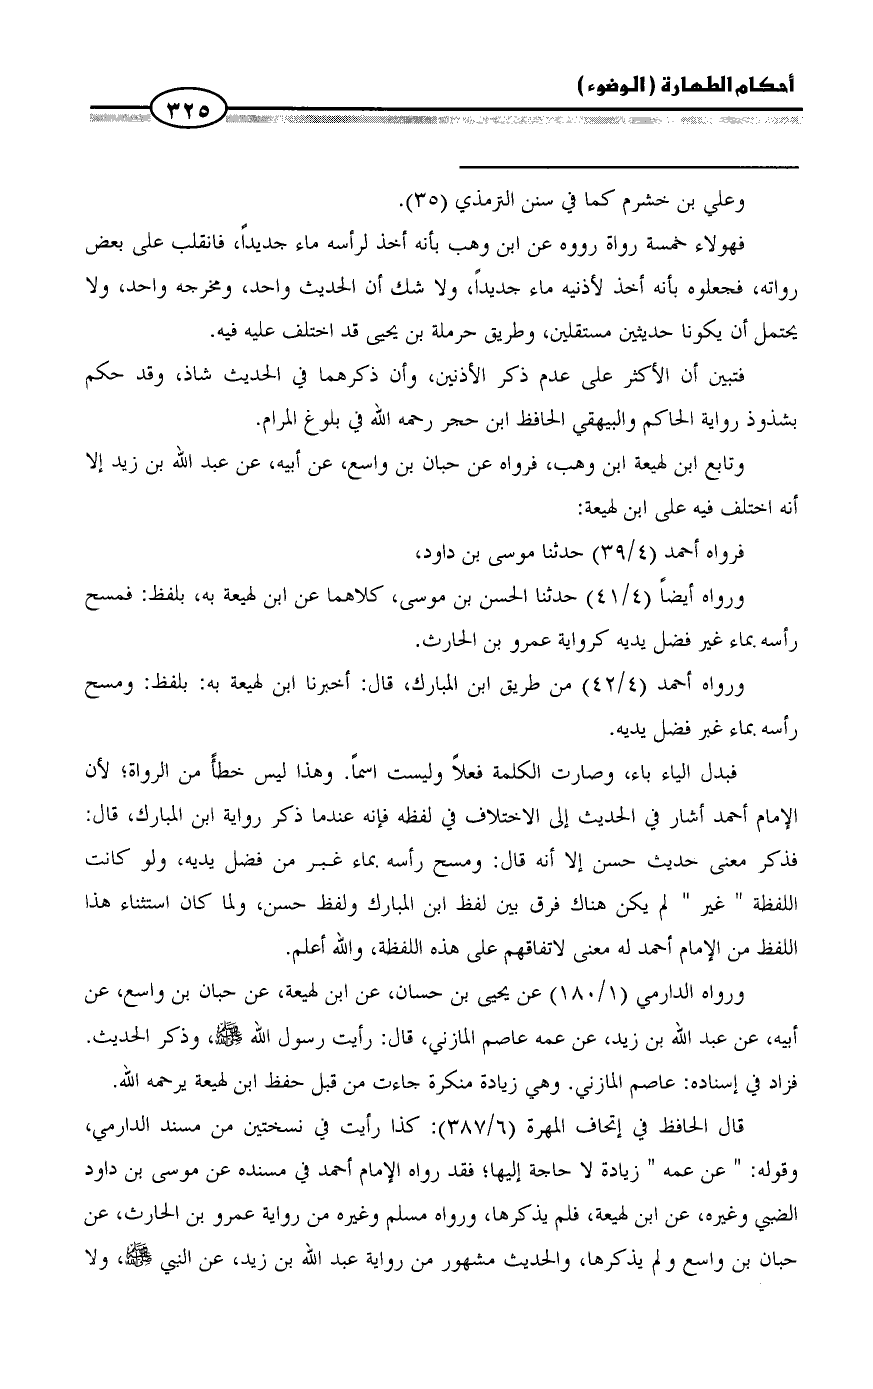 أحكام الطهارة (الوضوء)
٣٢٥
وعلي بن خشرم كما في سنن الترمذي (٣٥).
فهولاء خمسة رواة رووه عن ابن وهب بأنه أخذ لرأسه ماء جديداً، فانقلب على بعض
رواته، فجعلوه بأنه أخذ لأذنيه ماء جديداً، ولا شك أن الحديث واحد، ومخرجه واحد، ولا
يحتمل أن يكونا حديثين مستقلين، وطريق حرملة بن يحيى قد اختلف عليه فيه.
فتبين أن الأكثر على عدم ذكر الأذنين، وأن ذكرهما في الحديث شاذ، وقد حكم
بشذوذ رواية الحاكم والبيهقي الحافظ ابن حجر رحمه الله في بلوغ المرام.
وتابع ابن لهيعة ابن وهب، فرواه عن حبان بن واسع، عن أبيه، عن عبد الله بن زيد إلا
أنه اختلف فيه على ابن لهيعة:
فرواه أحمد (٣٩/٤) حدثنا موسى بن داود،
ورواه أيضاً (٤١/٤) حدثنا الحسن بن موسى، كلاهما عن ابن لهيعة به، بلفظ: فمسح
رأسه بماء غير فضل يديه كرواية عمرو بن الحارث.
ورواه أحمد (٤٢/٤) من طريق ابن المبارك، قال: أخبرنا ابن لهيعة به: بلفظ: ومسح
رأسه بماء غبر فضل يديه.
فبدل الياء باء، وصارت الكلمة فعلاً وليست اسماً. وهذا ليس خطأً من الرواة؛ لأن
الإمام أحمد أشار في الحديث إلى الاختلاف في لفظه فإنه عندما ذكر رواية ابن المبارك، قال:
فذكر معنى حديث حسن إلا أنه قال: ومسح رأسه بماء غبـر من فضل يديه، ولو كانت
اللفظة " غير " لم يكن هناك فرق بين لفظ ابن المبارك ولفظ حسن، ولما كان استثناء هذا
اللفظ من الإمام أحمد له معنى لاتفاقهم على هذه اللفظة، والله أعلم.
ورواه الدارمي (١٨٠/١) عن يحيى بن حسان، عن ابن لهيعة، عن حبان بن واسع، عن
أبيه، عن عبد الله بن زيد، عن عمه عاصم المازني، قال: رأيت رسول الله ﷺ، وذكر الحديث.
فزاد في إسناده: عاصم المازني. وهي زيادة منكرة جاءت من قبل حفظ ابن لهيعة يرحمه الله.
قال الحافظ في إتحاف المهرة (٣٨٧/٦): كذا رأيت في نسختين من مسند الدارمي،
وقوله: " عن عمه " زيادة لا حاجة إليها؛ فقد رواه الإمام أحمد في مسنده عن موسى بن داود
الضبي وغيره، عن ابن لهيعة، فلم يذكرها، ورواه مسلم وغيره من رواية عمرو بن الحارث، عن
حبان بن واسع و لم يذكرها، والحديث مشهور من رواية عبد الله بن زيد، عن النبي ﷺ، ولا